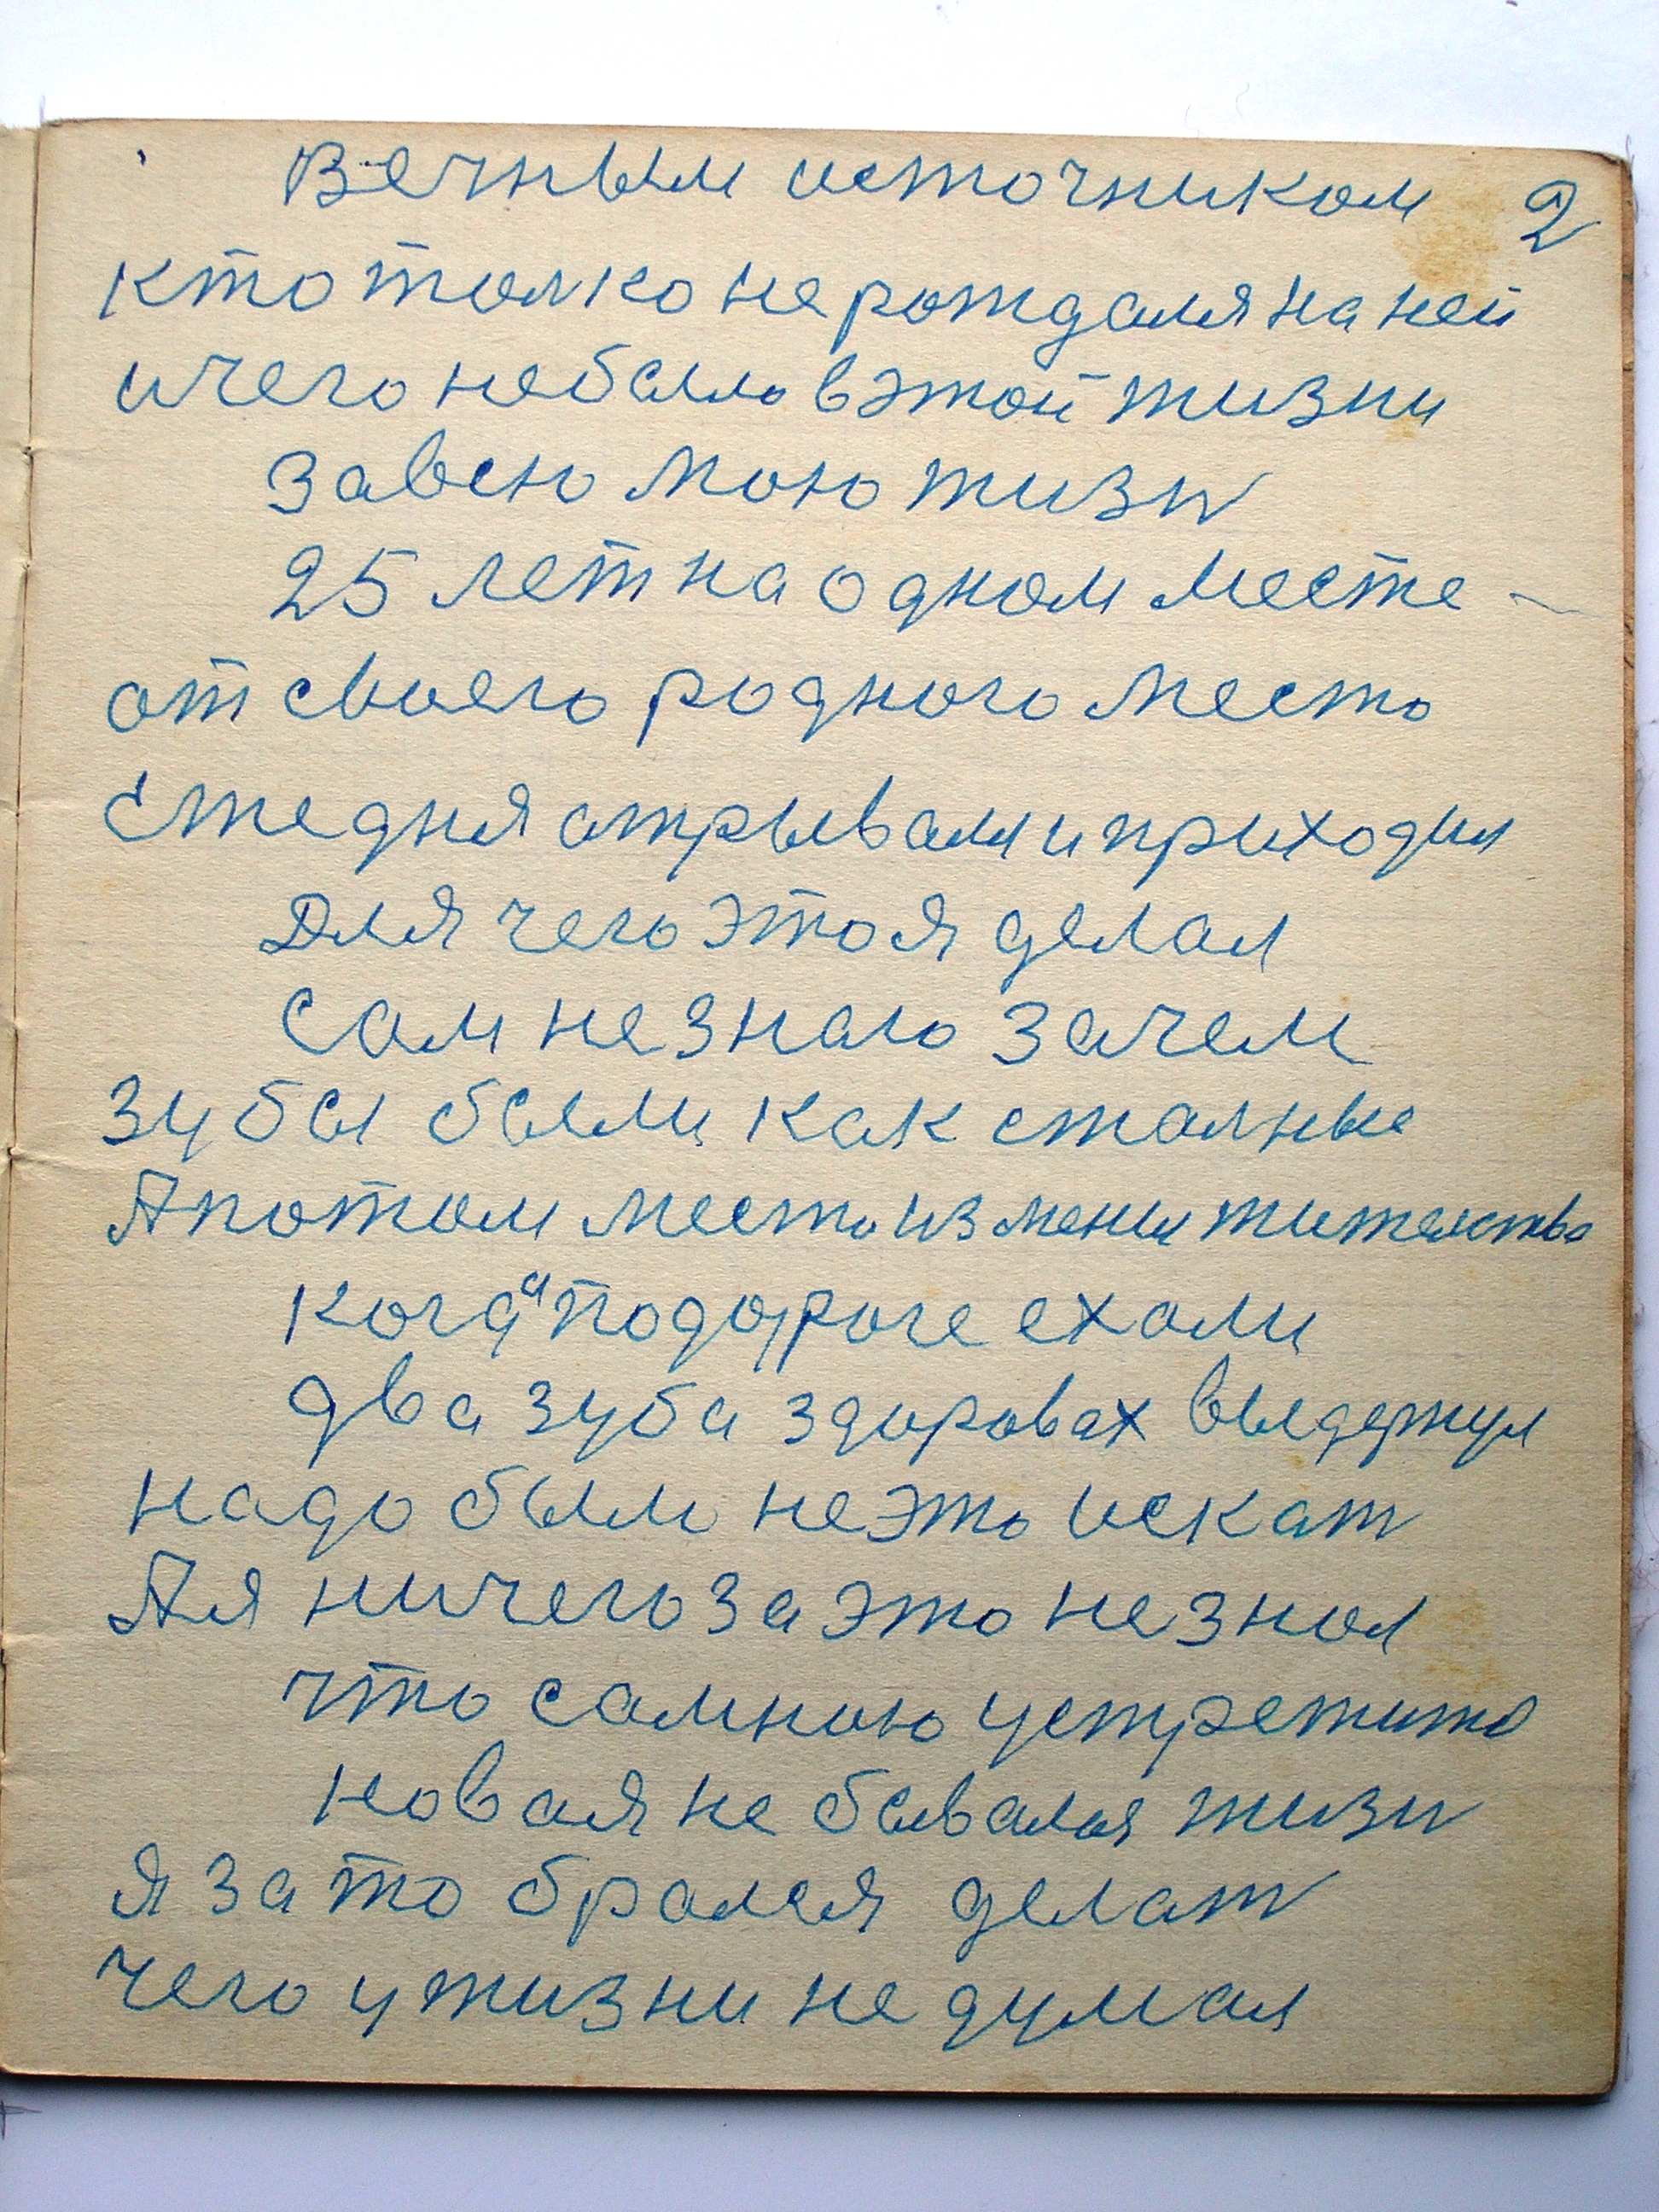 Вечным источником 2
кто толко не рождался на ней
и чего не было в этой жизни
за всю мою жизн
25 лет на одном месте
от своего родного место
еже дня отрывался и приходил
Для чего это я делал
Сам не знаю зачем
зубы были как сталные
А потом место изменил жителство
когда по дороге ехали
два зуба здоровах выдержул
надо было не это искат
А я ничего за это не знал
что со мною устретито
новая не бывалая жизн
я за то брался делат
чего у жизни не думал